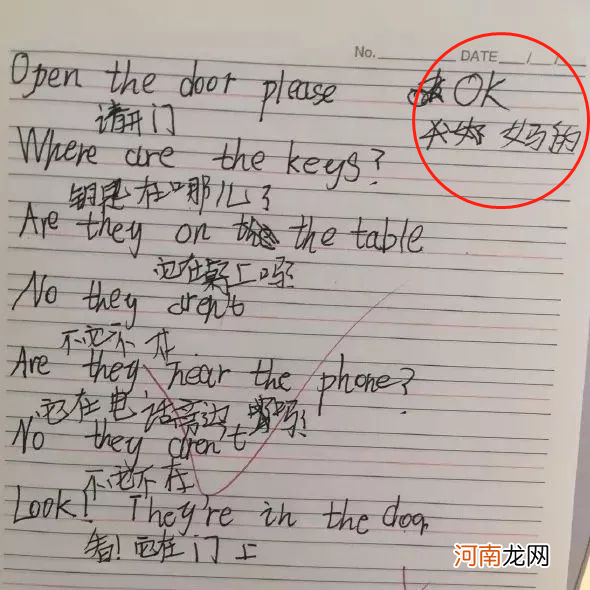 No. DATE / /
Open the door please OK
请开门 妈的
Where are the keys?
钥匙在哪儿?
Are they on the the table
它在桌上吗?
No they aren't
不它不在
Are they near the phone?
它在电话旁边吗?
No they aren't
不它不在
Look! They're in the door
看!它在门上
河南龙网